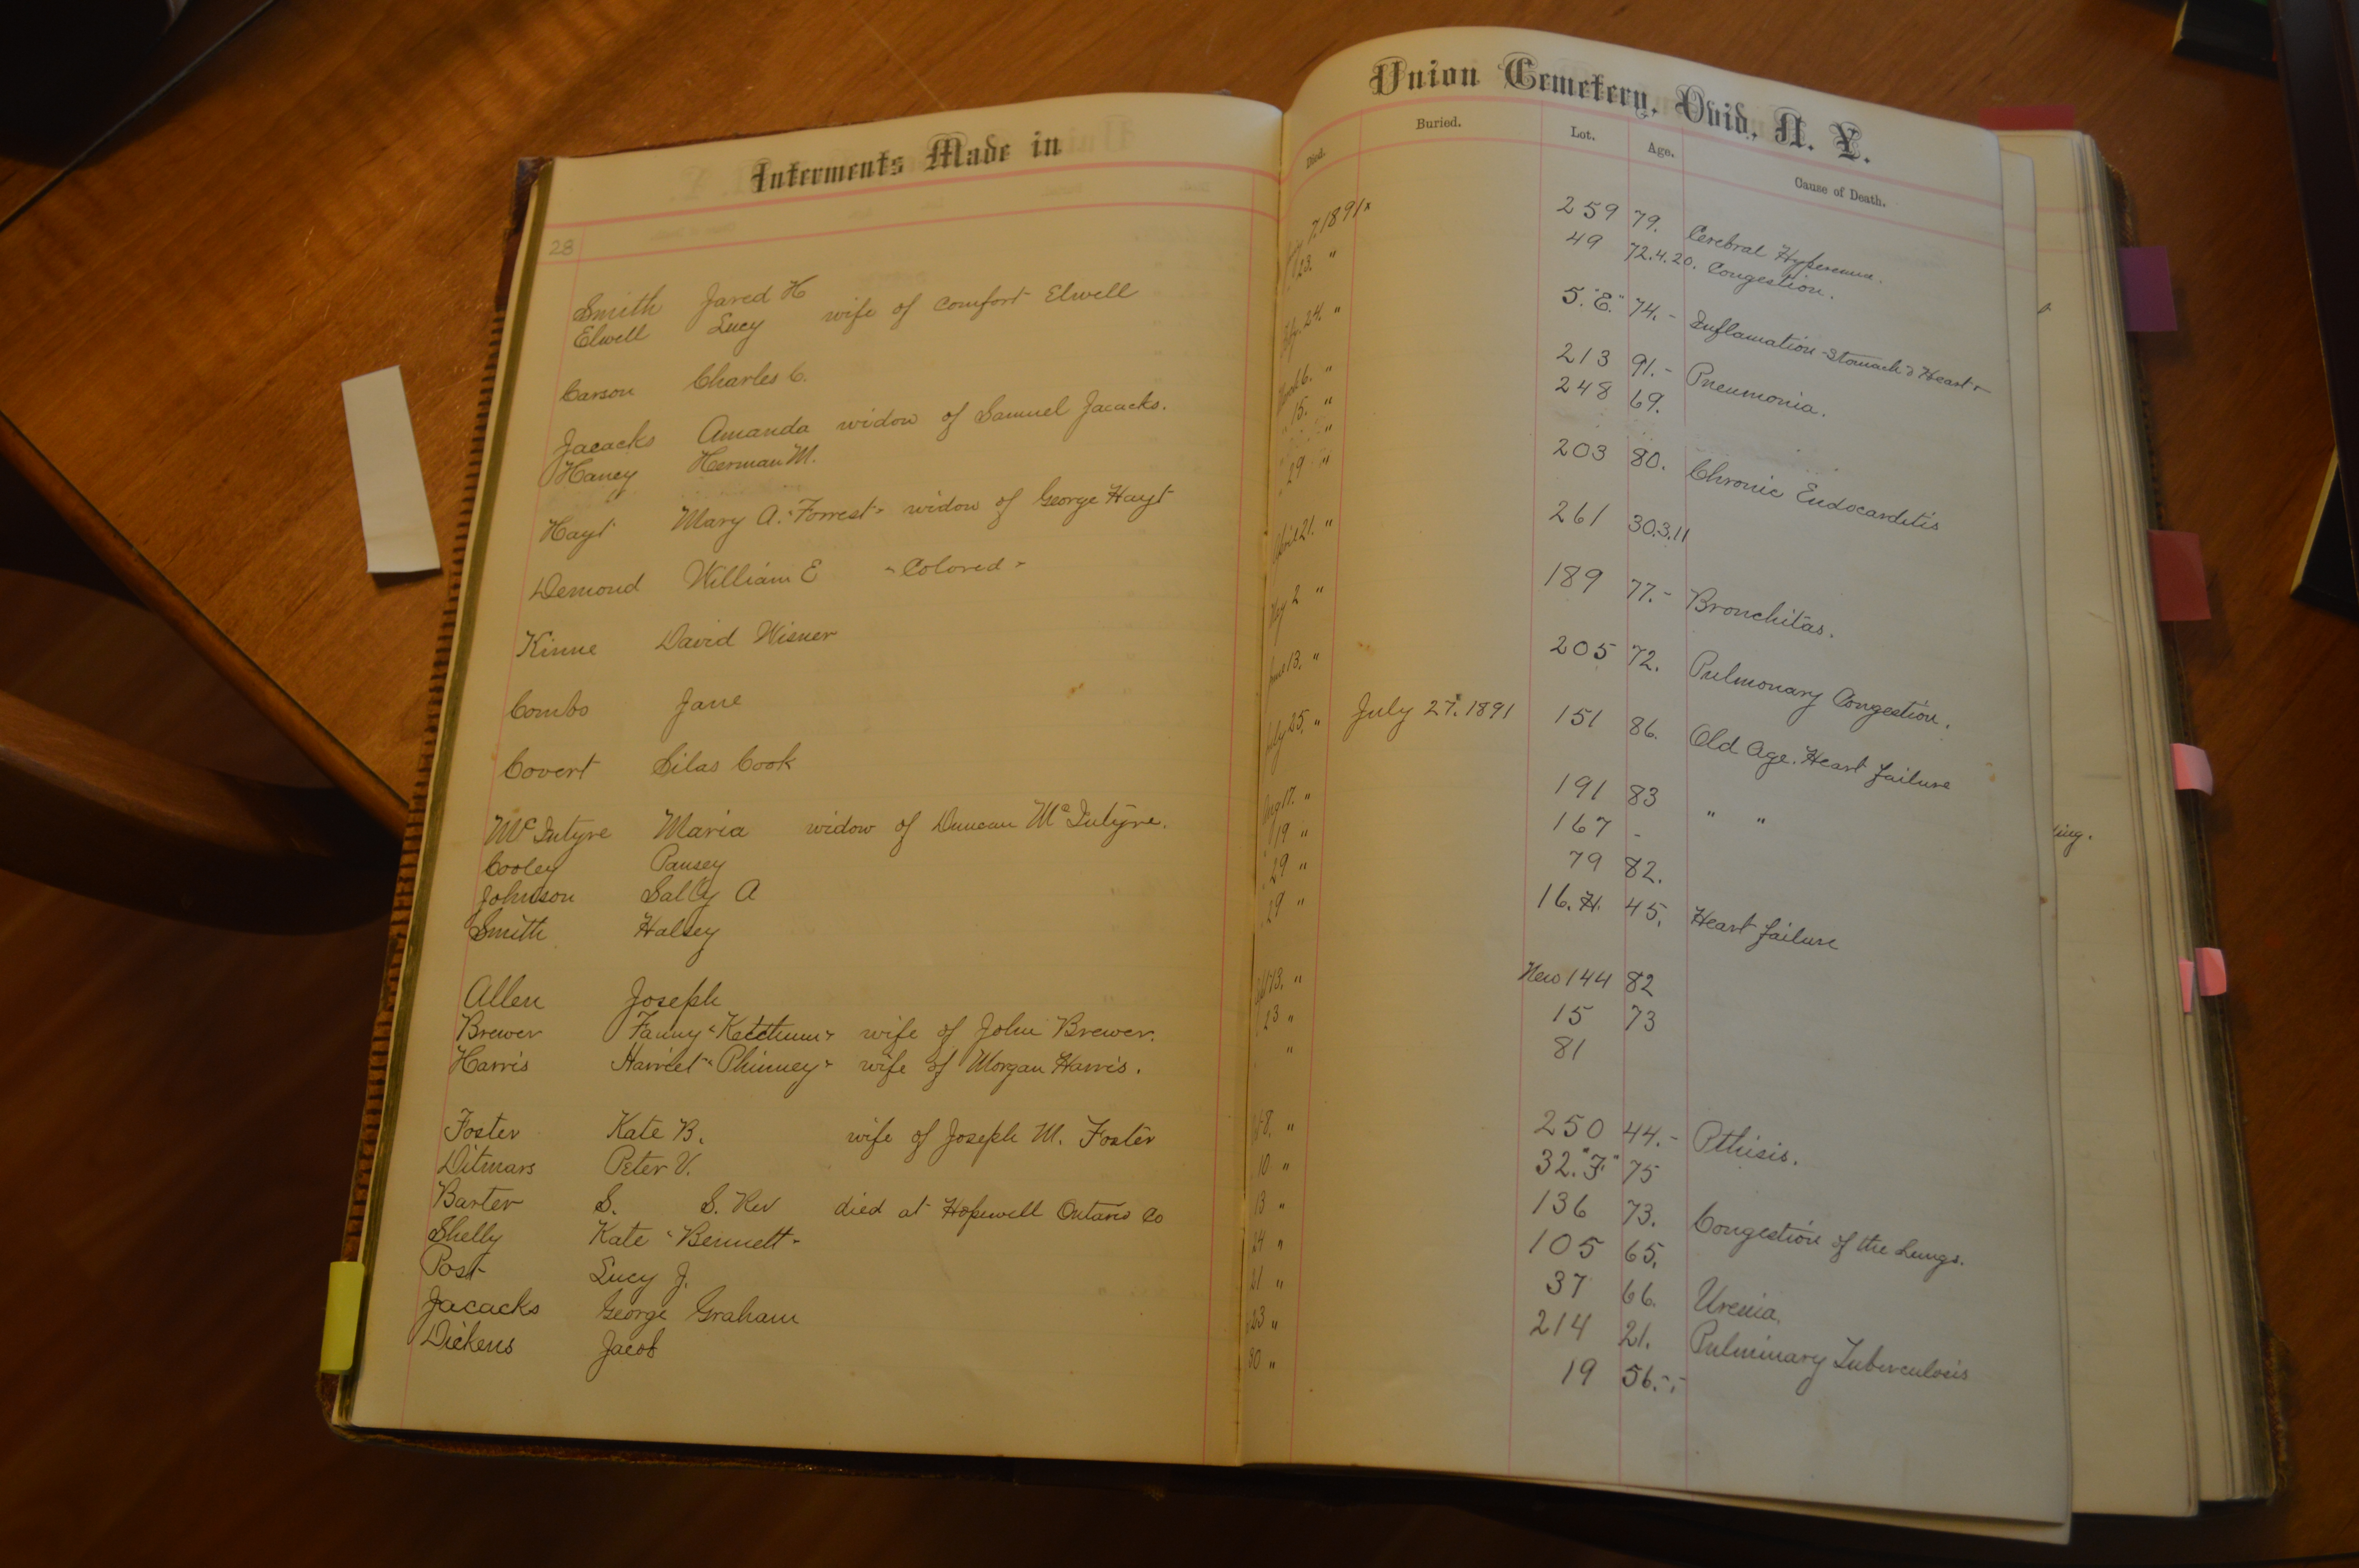 Interments Made in
Union Cemetery, Ovid, N. Y.
Died. Buried. Lot. Age. Cause of Death.
28
Smith Jared H 7. 1891 259 79. Cerebral
Elwell Lucy wife of Comfort Elwell 23. " 49 72.4.20. Congestion.
Carson Charles C. 24. " 5. "E." 74. - Inflamation Stomach & Heart
Jacacks Amanda widow of Samuel Jacacks. March 6. " 213 91. - Pneumonia.
Haney Herman M. " 15. " 248 69.
"
Hayt Mary A. "Forrest" widow of George Hayt " 29 " 203 80. Chronic Endocarditis
Demond William E "Colored" April 21. " 261 30.3.11
Kinne David Wisner May 2 " 189 77. - Bronchitas.
Combs Jane June 13. " 205 72. Pulmonary Congestion.
Covert Silas Cook July 25. " July 27. 1891 151 86. Old Age. Heart failure
McIntyre Maria widow of Duncan McIntyre. Aug 17. " 191 83 " "
Cooley Pansey 19 " 167 -
Johnson Sally A 29 " 79 82.
Smith Halsey 29 " 16. H. 45. Heart failure
Allen Joseph 13. " New 144 82
Brewer Fanny "Ketchum" wife of John Brewer. 23 " 15 73
Harris Harriet "Phinney" wife of Morgan Harris. " 81
Foster Kate B. wife of Joseph M. Foster 8. " 250 44. - Pthisis.
Ditmars Peter V. 10 " 32. "F" 75
Barter S. S. Rev died at Hopewell Ontario Co 13 " 136 73. Congestion of the Lungs.
Shelly Kate "Bennett" 24 " 105 65.
Post Lucy J. 21 " 37 66. Uremia.
Jacacks George Graham 23 " 214 21. Pulminary Tuberculosis
Dickens Jacob 30 " 19 56. - -